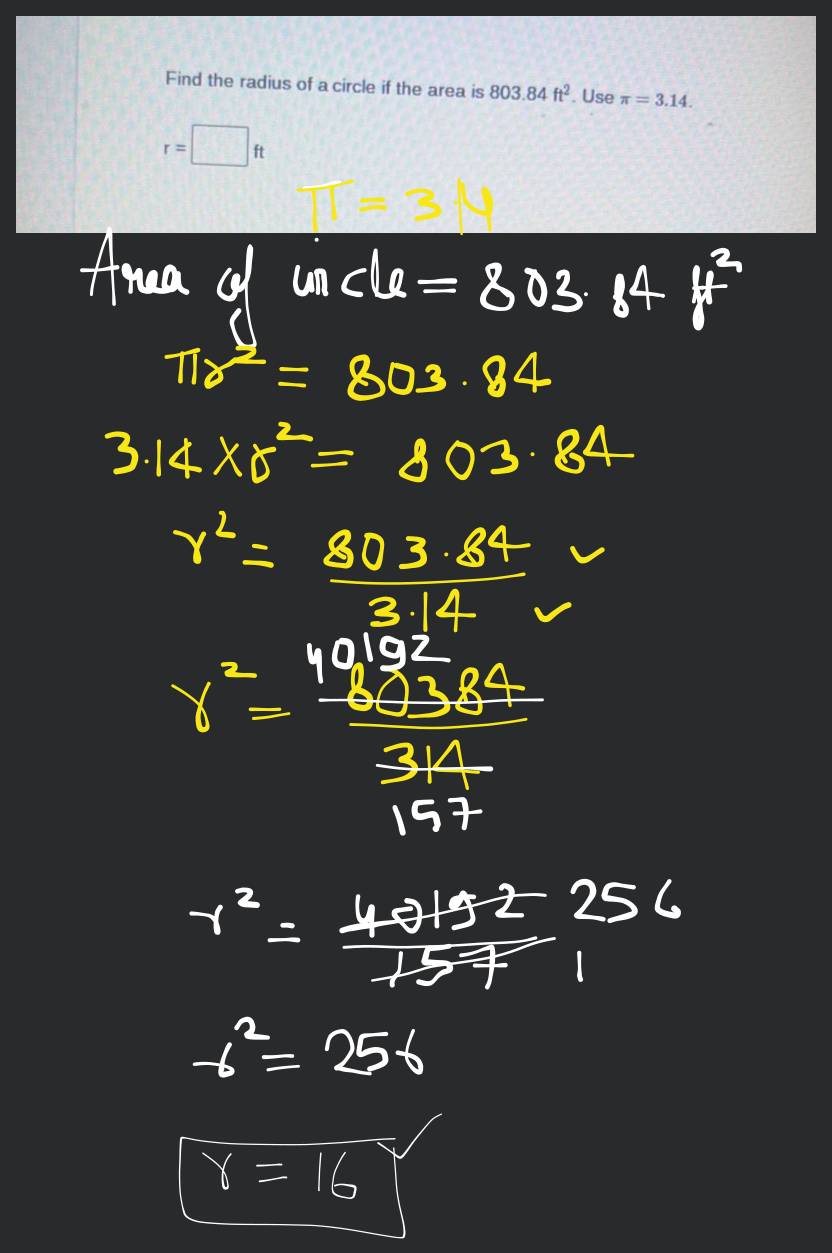 Find the radius of a circle if the area is 803.84 ft². Use π = 3.14.
r = ft
π = 3.14
Area of circle = 803.84 ft²
πr² = 803.84
3.14 × r² = 803.84
r² = 803.84 ✓
3.14 ✓
40192
r² = 80384
314
157
r² = 40192 256
157 1
r² = 256
r = 16 ✓